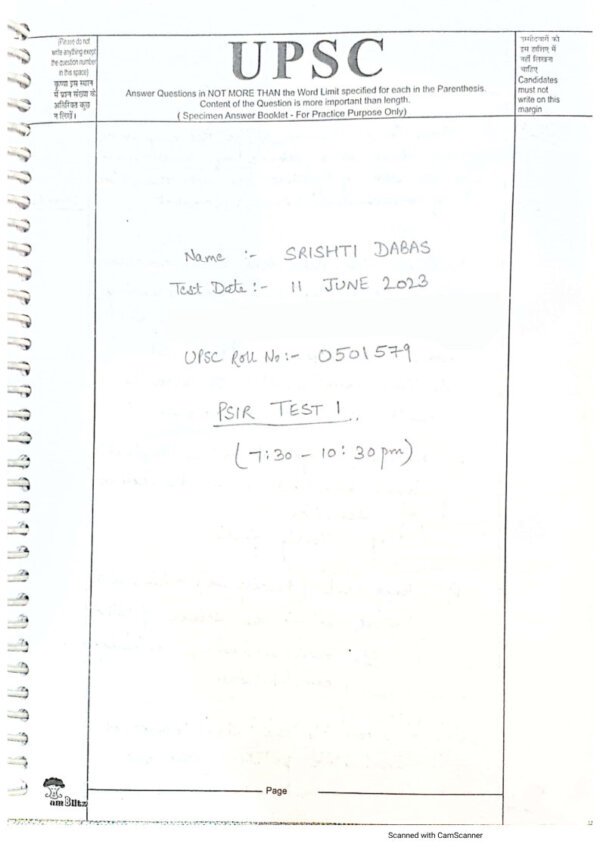 (Please do not
write anything except
the question number
in this space)
कृपया इस स्थान
में प्रश्न संख्या के
अतिरिक्त कुछ
न लिखें।
UPSC
Answer Questions in NOT MORE THAN the Word Limit specified for each in the Parenthesis.
Content of the Question is more important than length.
( Specimen Answer Booklet - For Practice Purpose Only)
उम्मीदवारों को
इस हाशिए में
नहीं लिखना
चाहिए
Candidates
must not
write on this
margin
Name :- SRISHTI DABAS
Test Date :- 11 JUNE 2023
UPSC Roll No :- 0501579
PSIR TEST 1
(7:30 - 10:30 pm)
Page
am Blitz
Scanned with CamScanner